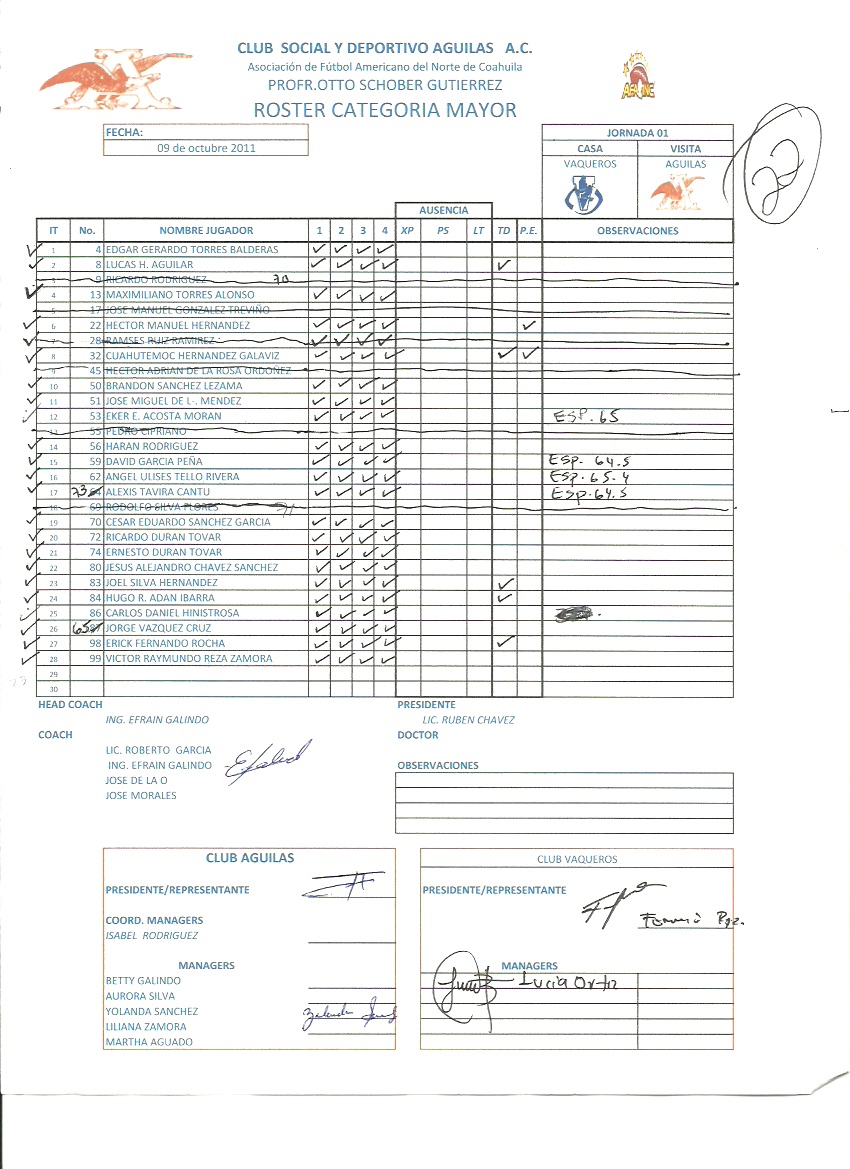 CLUB SOCIAL Y DEPORTIVO AGUILAS A.C.
Asociación de Fútbol Americano del Norte de Coahuila
PROFR.OTTO SCHOBER GUTIERREZ
ROSTER CATEGORIA MAYOR
FECHA:
09 de octubre 2011
JORNADA 01
CASA VISITA
VAQUEROS AGUILAS
22
AUSENCIA
IT No. NOMBRE JUGADOR 1 2 3 4 XP PS LT TD P.E. OBSERVACIONES
✓ 1 4 EDGAR GERARDO TORRES BALDERAS ✓ ✓ ✓ ✓
✓ 2 8 LUCAS H. AGUILAR ✓ ✓ ✓ ✓ ✓
3 9 RICARDO RODRIGUEZ 70
✓ 4 13 MAXIMILIANO TORRES ALONSO ✓ ✓ ✓ ✓
5 17 JOSE MANUEL GONZALEZ TREVIÑO
✓ 6 22 HECTOR MANUEL HERNANDEZ ✓ ✓ ✓ ✓ ✓
✓ 7 28 RAMSES RUIZ RAMIREZ ✓ ✓ ✓ ✓
✓ 8 32 CUAHUTEMOC HERNANDEZ GALAVIZ ✓ ✓ ✓ ✓ ✓ ✓
9 45 HECTOR ADRIAN DE LA ROSA ORDOÑEZ
✓ 10 50 BRANDON SANCHEZ LEZAMA ✓ ✓ ✓ ✓
✓ 11 51 JOSE MIGUEL DE L-. MENDEZ ✓ ✓ ✓ ✓
✓ 12 53 EKER E. ACOSTA MORAN ✓ ✓ ✓ ✓ ESP. 65
13 55 PEDRO CIPRIANO
✓ 14 56 HARAN RODRIGUEZ ✓ ✓ ✓ ✓
✓ 15 59 DAVID GARCIA PEÑA ✓ ✓ ✓ ✓ Esp. 64.5
✓ 16 62 ANGEL ULISES TELLO RIVERA ✓ ✓ ✓ ✓ Esp. 65.4
✓ 17 73 ALEXIS TAVIRA CANTU ✓ ✓ ✓ ✓ Esp. 64.5
18 69 RODOLFO SILVA FLORES
✓ 19 70 CESAR EDUARDO SANCHEZ GARCIA ✓ ✓ ✓ ✓
✓ 20 72 RICARDO DURAN TOVAR ✓ ✓ ✓ ✓
✓ 21 74 ERNESTO DURAN TOVAR ✓ ✓ ✓ ✓
✓ 22 80 JESUS ALEJANDRO CHAVEZ SANCHEZ ✓ ✓ ✓ ✓
✓ 23 83 JOEL SILVA HERNANDEZ ✓ ✓ ✓ ✓ ✓
✓ 24 84 HUGO R. ADAN IBARRA ✓ ✓ ✓ ✓ ✓
✓ 25 86 CARLOS DANIEL HINISTROSA ✓ ✓ ✓ ✓
✓ 26 65 JORGE VAZQUEZ CRUZ ✓ ✓ ✓ ✓
✓ 27 98 ERICK FERNANDO ROCHA ✓ ✓ ✓ ✓ ✓
✓ 28 99 VICTOR RAYMUNDO REZA ZAMORA ✓ ✓ ✓ ✓
29
30
HEAD COACH PRESIDENTE
ING. EFRAIN GALINDO LIC. RUBEN CHAVEZ
COACH DOCTOR
LIC. ROBERTO GARCIA
ING. EFRAIN GALINDO OBSERVACIONES
JOSE DE LA O
JOSE MORALES
CLUB AGUILAS
PRESIDENTE/REPRESENTANTE
COORD. MANAGERS
ISABEL RODRIGUEZ
MANAGERS
BETTY GALINDO
AURORA SILVA
YOLANDA SANCHEZ
LILIANA ZAMORA
MARTHA AGUADO
CLUB VAQUEROS
PRESIDENTE/REPRESENTANTE
MANAGERS
Lucia Ortiz